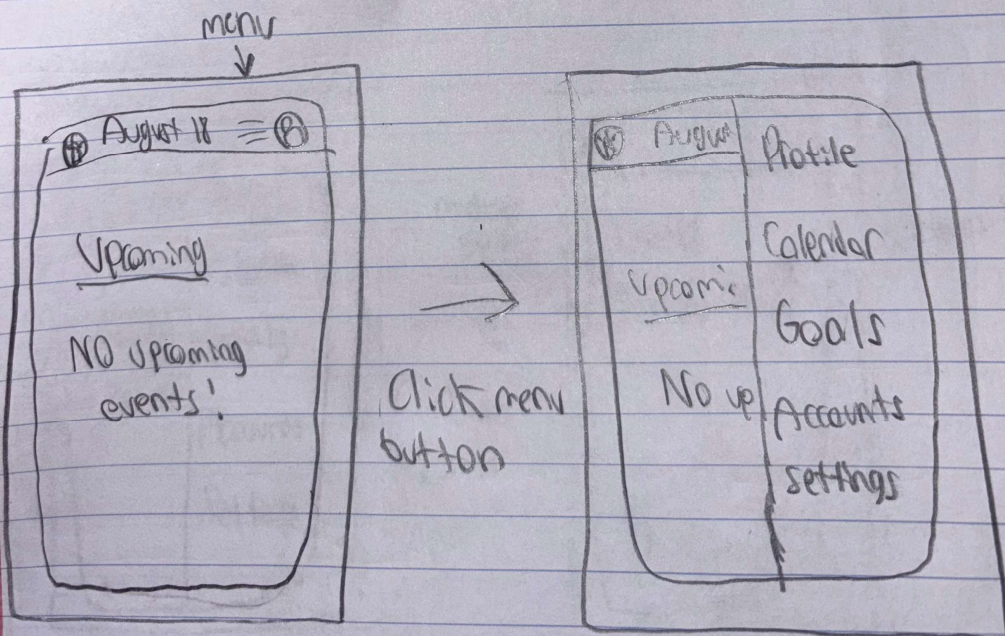 menu
August 18
Upcoming
NO upcoming
events!
Click menu
button
August
Upcomi
No up
Profile
Calendar
Goals
Accounts
settings